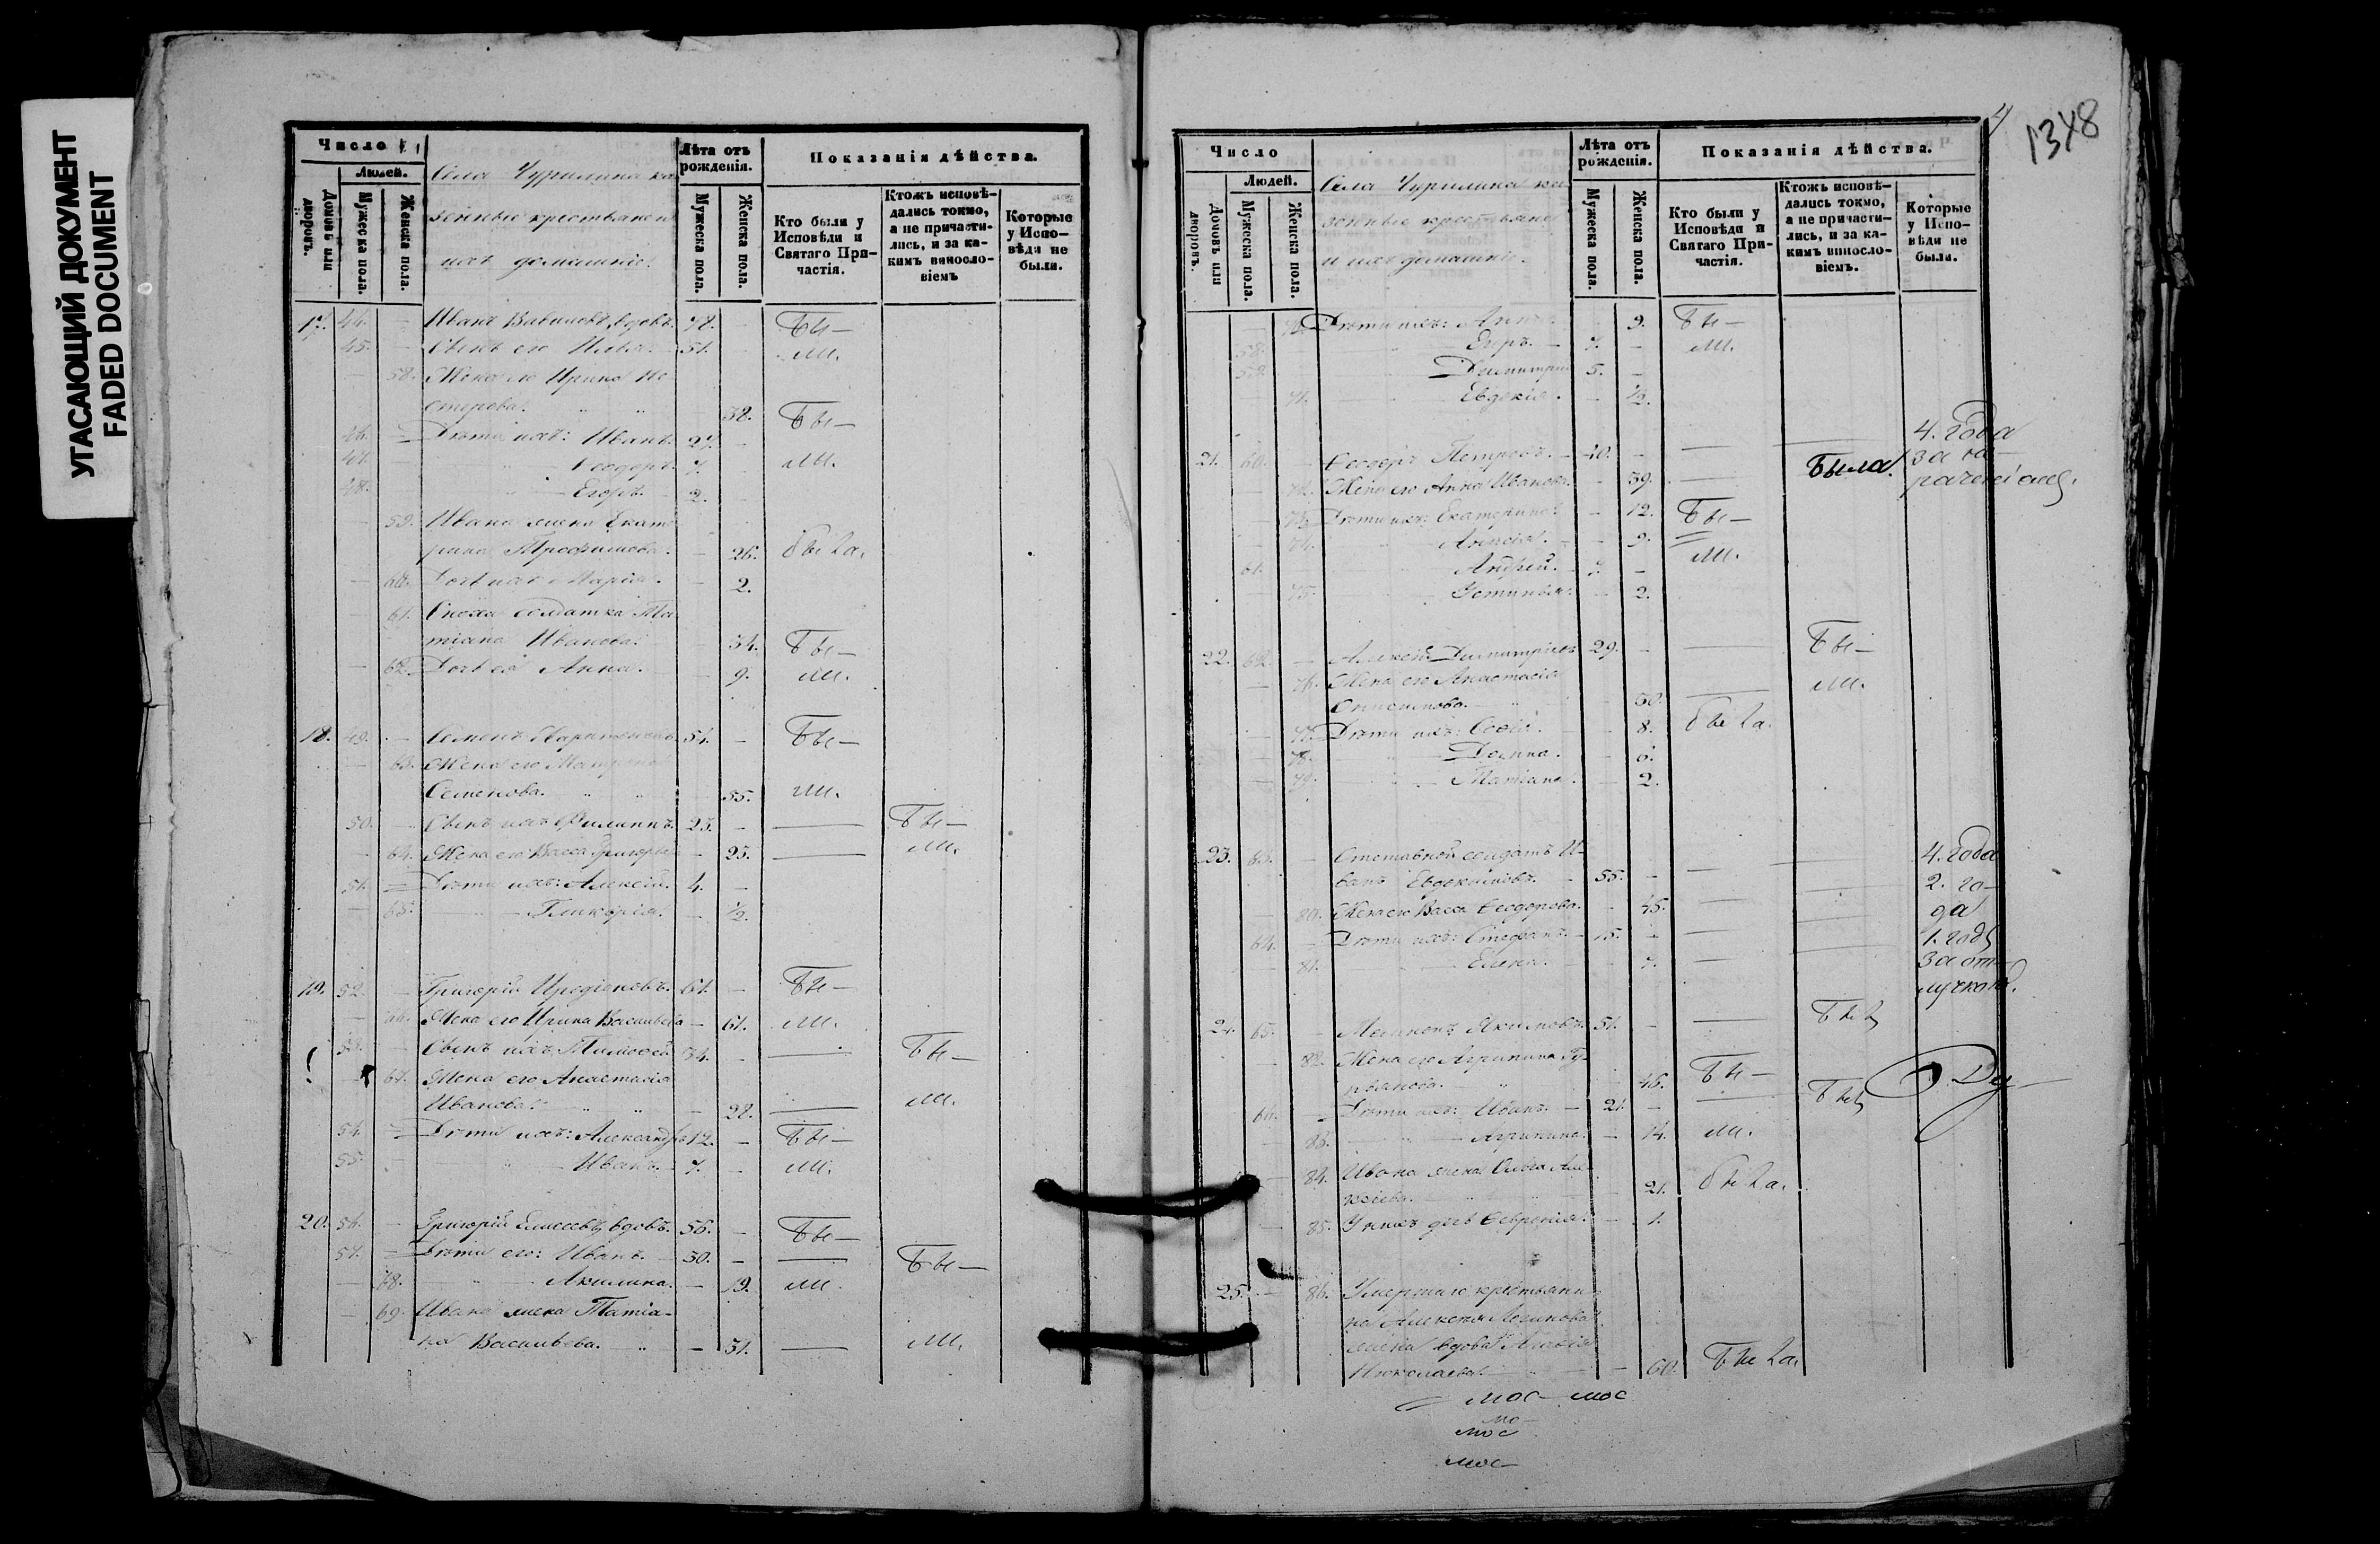 УГАСАЮЩИЙ ДОКУМЕНТ
FADED DOCUMENT
Число
Людей.
Домовъ или дворовъ.
Мужеска пола.
Женска пола.
Села Чурилина ка
зенные крестьяне и
ихъ домашніе.
Лѣта отъ рожденія.
Мужеска пола.
Женска пола.
Показанія дѣйства.
Кто были у Исповѣди и Святаго Причастія.
Ктожъ исповѣдались токмо, а не причастились, и за какимъ винословіемъ
Которые у Исповѣди не были.
17. 44. — Иванъ Вавиловъ, вдовъ. 72. — Бы—
45. — Сынъ его Илья. 51. — ли.
— 58. Жена его Ирина Не
стерова. 38. Бы—
46. — Дѣти ихъ: Иванъ. 27. —
47. — Ѳеодоръ. 7. — ли.
48. — Егоръ. 2.
— 59. Ивана жена Екате
рина Трофимова. — 26. была.
— 60. Дочь ихъ Марія. — 2.
61. Сноха солдатка Та
тіана Иванова. 34. Бы—
— 62. Дочь ея Анна. — 9. ли.
18. 49. — Семенъ 54. — Бы—
— 63. Жена его
Семенова. 55. ли.
50. — Сынъ ихъ Филиппъ. 23. — — Бы—
— 64. Жена его Васса Григорьева — 23. — ли.
51. — Дѣти ихъ: Алексѣй. 4. —
— 65. Гликерія. — 1/2.
19. 52. — Григорій Иродіоновъ. 61. — Бы—
— 66. Жена его Ирина Васильева — 61. ли.
53. — Сынъ ихъ Тимоѳей 34. — — Бы—
— 67. Жена его Анастасія
Иванова. — 28. — ли.
54. — Дѣти ихъ: Александръ 12. — Бы—
55. — Иванъ. 7. — ли.
20. 56. — Григорій Елисеевъ, вдовъ. 56. — Бы—
57. — Дѣти его: Иванъ. 30. — — Бы—
— 68. Акилина. — 19. ли
— 69. Ивана жена Татіа-
на Васильева. — 31. — ли.
4
1348
Число
Людей.
Домовъ или дворовъ.
Мужеска пола.
Женска пола.
Села Чурилина ка
зенные крестьяне
и ихъ домашніе.
Лѣта отъ рожденія.
Мужеска пола.
Женска пола.
Показанія дѣйства.
Кто были у Исповѣди и Святаго Причастія.
Ктожъ исповѣдались токмо, а не причастились, и за какимъ винословіемъ.
Которые у Исповѣди не были.
70. Дѣти ихъ: Анна. 9. Бы—
58. Егоръ. 7. — ли.
59. Димитрій 5. —
71. Евдокія. — 1/2.
21. 60. — Ѳеодоръ Петровъ. 40. — — 4. года
— 72. Жена его Анна Иванова. — 39. — Была. за
— 73. Дѣти ихъ: Екатерина. — 12. Бы—
— 74. Анисія. — 9.
61. Андрей. 7. — ли.
— 75. Устинья. 2.
22. 62. — Алексѣй Димитріевъ 29. — — Бы—
— 76. Жена его Анастасія ли.
Онисимова. 30. —
— 77. Дѣти ихъ: Софія. 8. была.
— 78. Домна. 6.
— 79. Татіана. 2.
23. 63. — Отставной солдатъ И-
ванъ Евдокимовъ. 55. — — 4. года
80. Жена его Васса Ѳеодорова. 45. — 2. го-
да
64. — Дѣти ихъ: Стефанъ. — 15. — — 1. годъ
— 81. Елена. 7. — за от-
лучкою.
24. 65. — Якимовъ. 51. — — Былъ
— 82. Жена его Агрипина Гу-
рьянова. 46. Бы—
66. — Дѣти ихъ: Иванъ. — 21. — — Былъ
— 83. Агрипина. — 14. ли.
— 84. Ивана жена Ольга Але
ксіева. 21. была.
— 85. У нихъ дочь Евфросинія. — 1.
25. — 86. Умершаго крестьяни
на Алексѣя Логинова
жена вдова
Николаева. — 60. Была.
мос— мос
мо—
мос
мос—